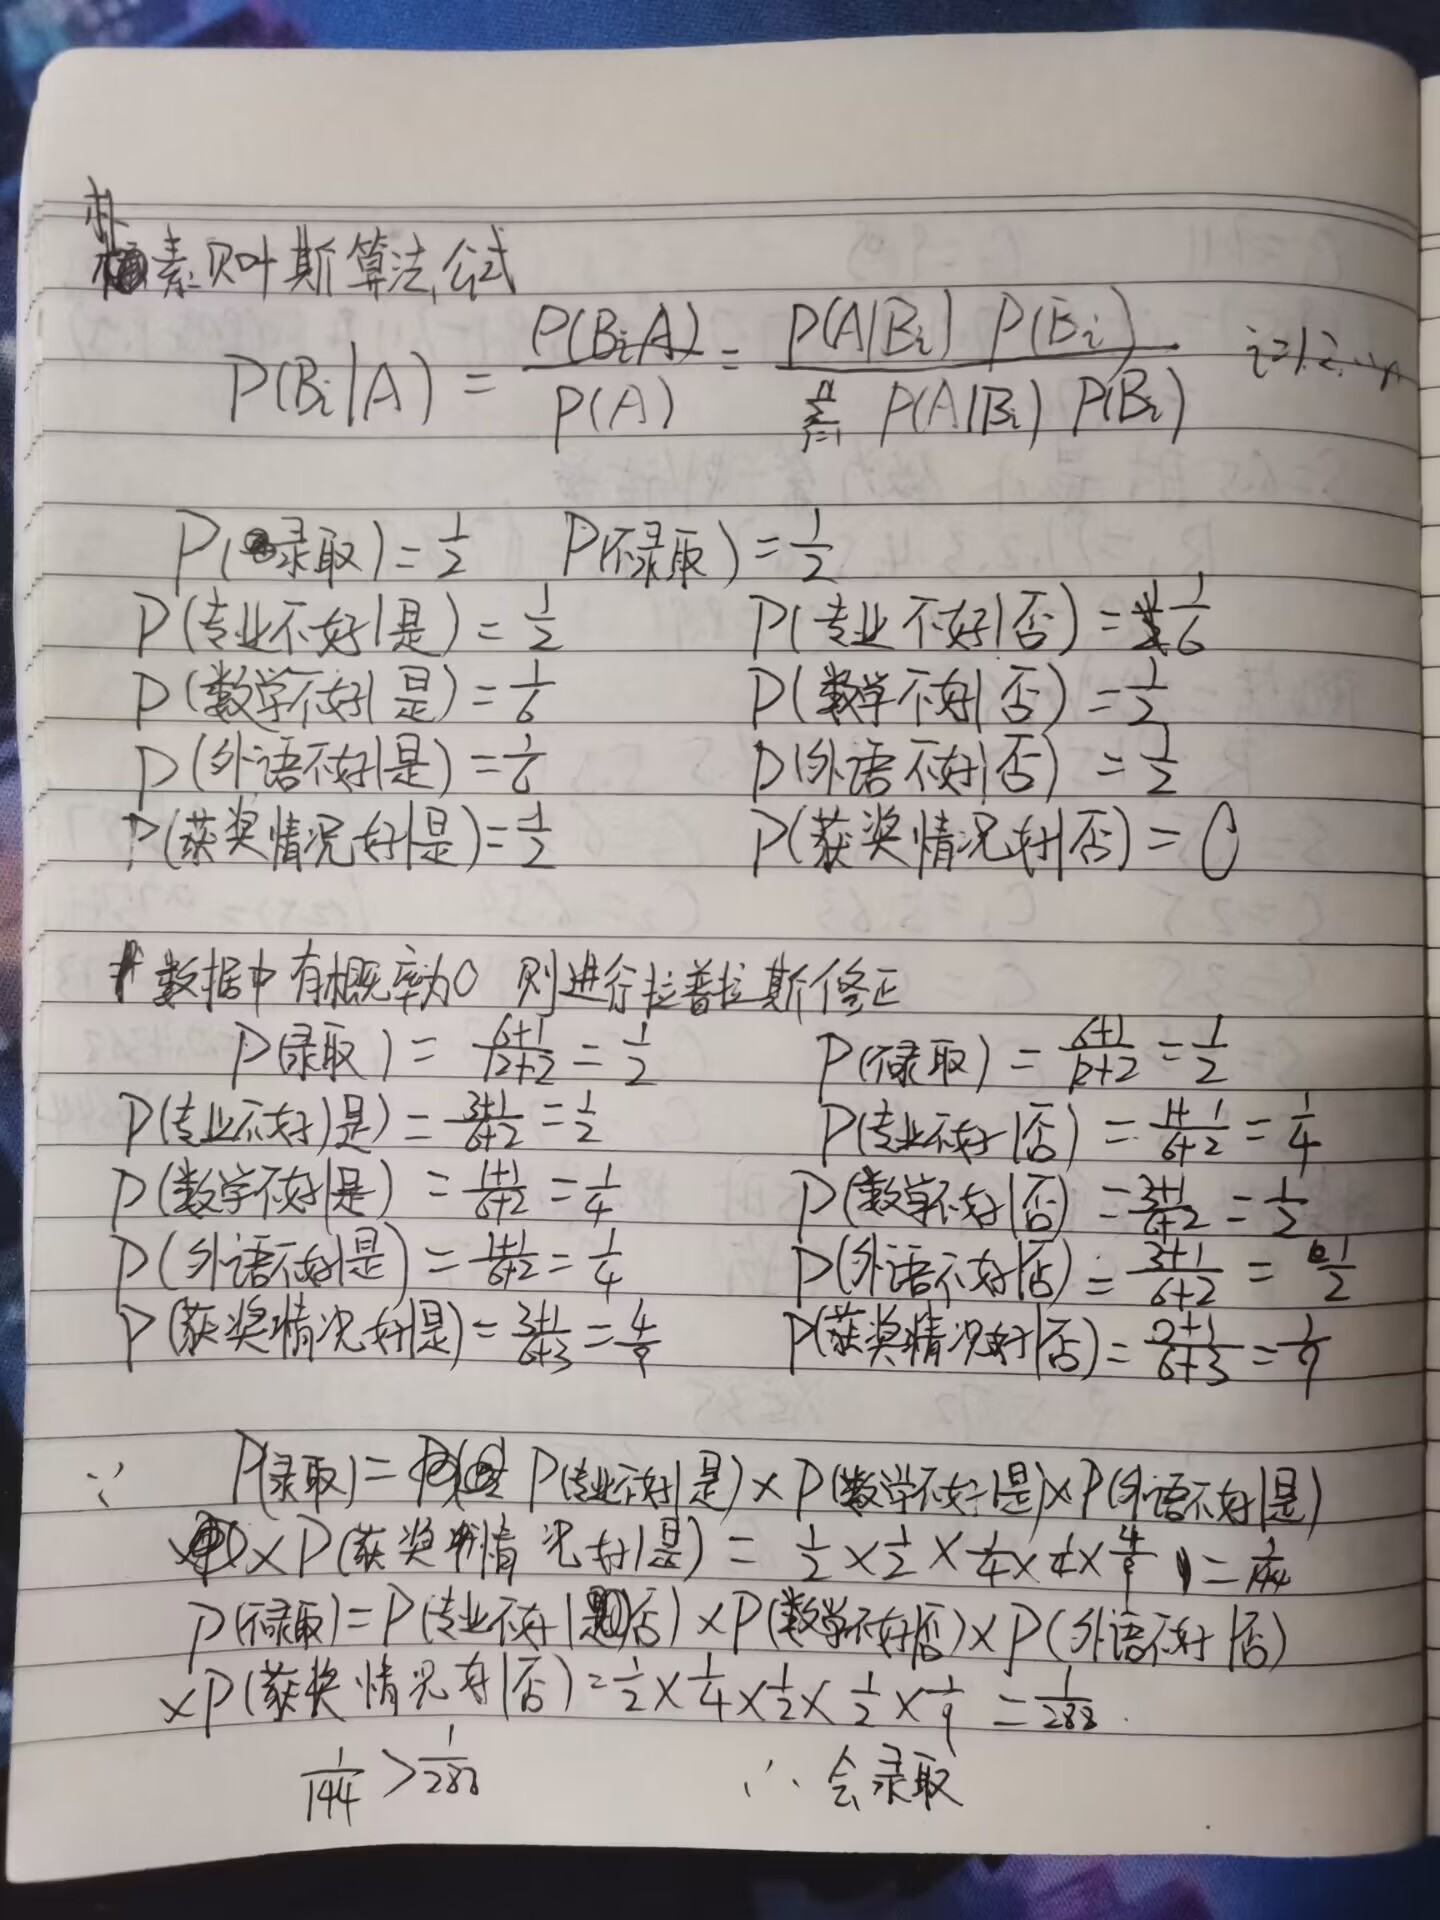 朴素贝叶斯算法公式
P(Bi|A) = P(BiA)/P(A) = P(A|Bi) P(Bi) / Σ_{j=1}^{n} P(A|Bi) P(Bi) i=1.2...n
P(录取)=1/2 P(不录取)=1/2
P(专业不好|是)=1/2 P(专业不好|否)=1/6
P(数学不好|是)=1/6 P(数学不好|否)=1/2
P(外语不好|是)=1/6 P(外语不好|否)=1/2
P(获奖情况好|是)=1/2 P(获奖情况好|否)=0
数据中有概率为0 则进行拉普拉斯修正
P(录取)= 6+1/12+2 = 1/2 P(不录取)= 6+1/12+2 = 1/2
P(专业不好|是)= 3+1/6+2 = 1/2 P(专业不好|否)= 1+1/6+2 = 1/4
P(数学不好|是)= 1+1/6+2 = 1/4 P(数学不好|否)= 3+1/6+2 = 1/2
P(外语不好|是)= 1+1/6+2 = 1/4 P(外语不好|否)= 3+1/6+2 = 1/2
P(获奖情况好|是)= 3+1/6+3 = 4/9 P(获奖情况好|否)= 0+1/6+3 = 1/9
∵ P(录取)= P(专业不好|是)×P(数学不好|是)×P(外语不好|是)
×P(获奖情况好|是)= 1/2×1/2×1/4×1/4×4/9=1/144
P(不录取)=P(专业不好|否)×P(数学不好|否)×P(外语不好|否)
×P(获奖情况好|否)=1/2×1/4×1/2×1/2×1/9=1/288
1/144>1/288 ∴会录取